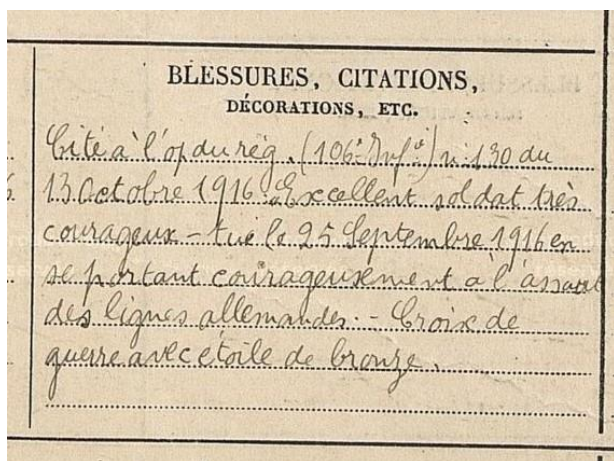 BLESSURES, CITATIONS,
DÉCORATIONS, ETC.
Cité à l'o/ du rég. (106e Infie) n: 130 du
13 Octobre 1916 "Excellent soldat très
courageux - tué le 25 Septembre 1916 en
se portant courageusement à l'assaut
des lignes allemandes. - Croix de
guerre avec étoile de bronze.